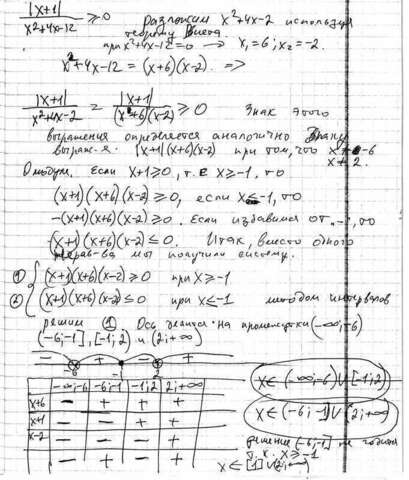 |x+1|
x²+4x-12 ≥ 0 Разложим x²+4x-2 используя
теорему Виета.
при x²+4x-12=0 → x₁=6; x₂=-2.
x²+4x-12 = (x+6)(x-2). =>
|x+1| / x²+4x-2 = |x+1| / (x+6)(x-2) ≥ 0 Знак этого
выражения определяется аналогично знаку
выраж-я. |x+1|(x+6)(x-2) при том, что x ≠ -6
x ≠ 2.
О модуле. Если x+1≥0, т.е x≥-1, то
(x+1)(x+6)(x-2) ≥0, если x≤-1, то
-(x+1)(x+6)(x-2) ≥0. Если избавимся от -, то
(x+1)(x+6)(x-2) ≤0. Итак, вместо одного
нерав-ва мы получили систему.
① (x+1)(x+6)(x-2) ≥0 при x≥-1
② (x+1)(x+6)(x-2) ≤0 при x≤-1 методом интервалов
решим ① Ось делится на промежутки (-∞;-6)
(-6;-1], [-1;2) и (2;+∞)
− + − +
-6 -1 2
-∞;-6 -6;-1 -1;2 2;+∞
x+6 − + + +
x+1 − − + +
x-2 − − − +
− + − +
x∈(-∞;-6)∪[-1;2)
x∈(-6;-1]∪(2;+∞)
решение (-6;-1] не годится
т.к. x≥-1
x∈[1]∪(2;+∞)